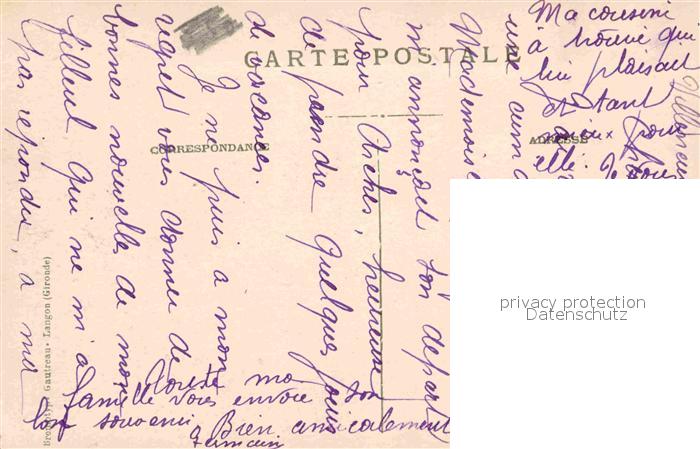 CARTE POSTALE
CORRESPONDANCE
ADRESSE
Ma cousine
à trouvé qui
lui plaisait
et tant
mieux pour
elle. Je
une
Mademois
m'annonçait son départ
pour Arches, heureuse
de prendre quelques jours
de vacances.
Je ne puis à mon
regret vous donner de
bonnes nouvelles de mon
filleul qui ne m'a
pas répondu, à ma
Toute ma
famille vous envoie son
bon souvenir Bien amicalement
Germain
Gautreau - Langon (Gironde)
privacy protection
Datenschutz